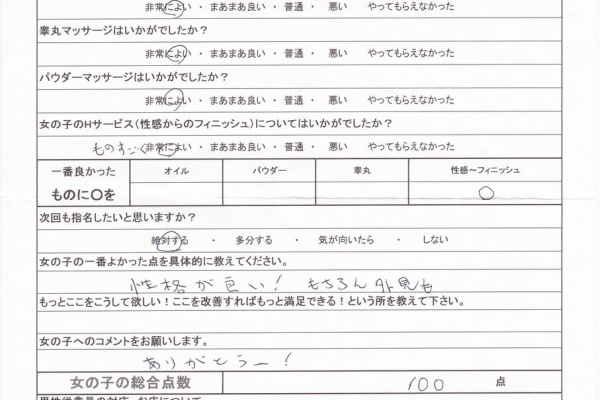 非常によい ・ まあまあ良い ・ 普通 ・ 悪い やってもらえなかった
睾丸マッサージはいかがでしたか?
非常によい ・ まあまあ良い ・ 普通 ・ 悪い やってもらえなかった
パウダーマッサージはいかがでしたか?
非常によい ・ まあまあ良い ・ 普通 ・ 悪い やってもらえなかった
女の子のHサービス(性感からのフィニッシュ)についてはいかがでしたか?
ものすごく 非常によい ・ まあまあ良い ・ 普通 ・ 悪い やってもらえなかった
一番良かった オイル パウダー 睾丸 性感~フィニッシュ
ものに〇を 〇
次回も指名したいと思いますか?
絶対する ・ 多分する ・ 気が向いたら ・ しない
女の子の一番よかった点を具体的に教えてください。
性格が良い! もちろん外見も
もっとここをこうして欲しい!ここを改善すればもっと満足できる!という所を教えて下さい。
女の子へのコメントをお願いします。
ありがとうー!
女の子の総合点数 100 点
男性従業員の対応、お店について